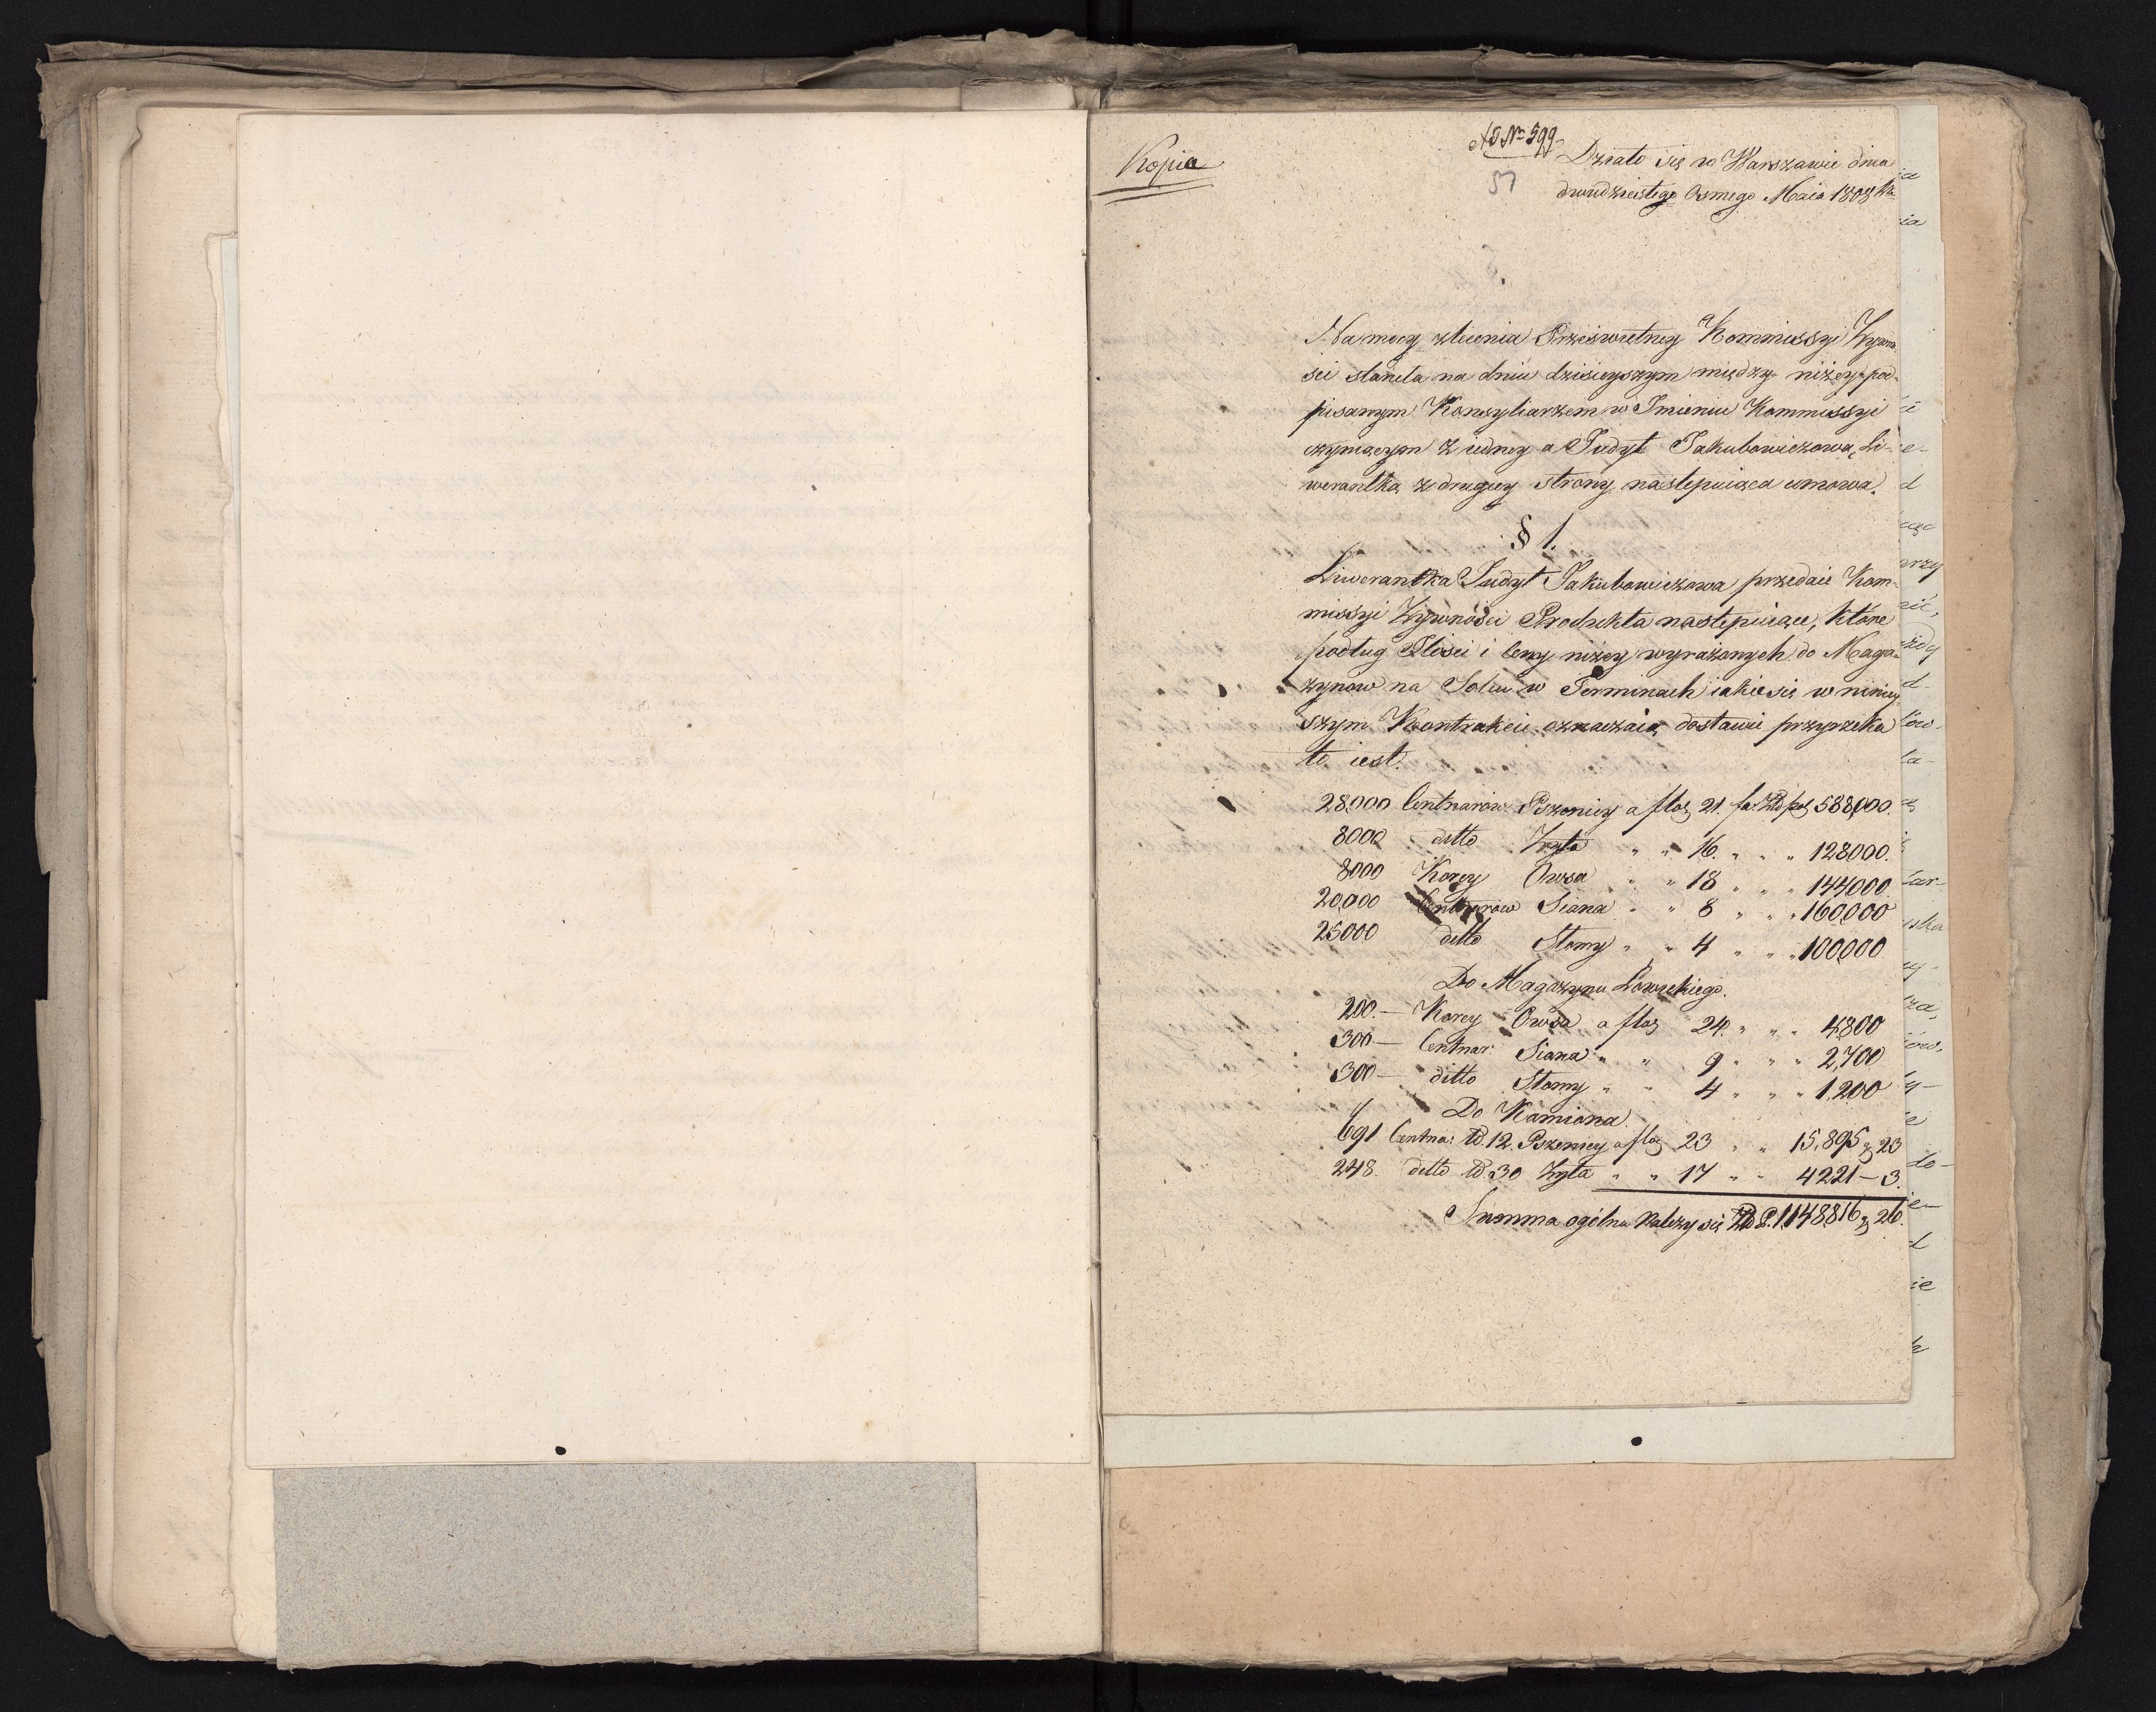 Kopia
AD No 599
57
Działo się w Warszawie dnia
dwudziestego Osmego Maia 1808 Rku
Na mocy zlicenia Prześwietney Kommissyi Żywno
sci stanęła na dniu dzisieyszym między niżey pod-
pisanym Konsyliarzem w Imieniu Kommissyi
czyniącym z iedney a Judyt Jakubowiczową Li-
werantką z drugiey strony następuiąca umowa.
§ 1.
Liwerantka Judyt Jakubowiczowa przedaie Kom-
missyi Żywności Produkta następuiące, które
podług Ilości i Ceny niżey wyrażonych do Maga-
zynow na Solcu w Terminach iakie się w niniey
szym Kontrakcie oznaczaią dostawić przyrzeka
to iest.
28,000 Centnarów Pszenicy a flor 21. fac: Złt pol 588,000.
8000 ditto Żyta " " 16. " " " 128000.
8000 Korcy Owsa " " 18 " " " 144000.
20,000 Centnarów Siana " " 8 " " " 160,000
25000 ditto Słomy " " 4 " " " 100000
Do Magazynu Łowickiego.
200.— Korcy Owsa a flor 24. " " " 4,800
300— Centnar: Siana " " 9 " " " 2,700
300— ditto Słomy " " 4 " " " 1,200
Do Kamiona.
691 Centna: tt. 12. Pszenicy a flor 23 " " 15,895 g 23
248. ditto tt. 30 Żyta " " 17 " " 4221—3.
Summa ogólna Należy się Złt P. 1,148,816 g 26.